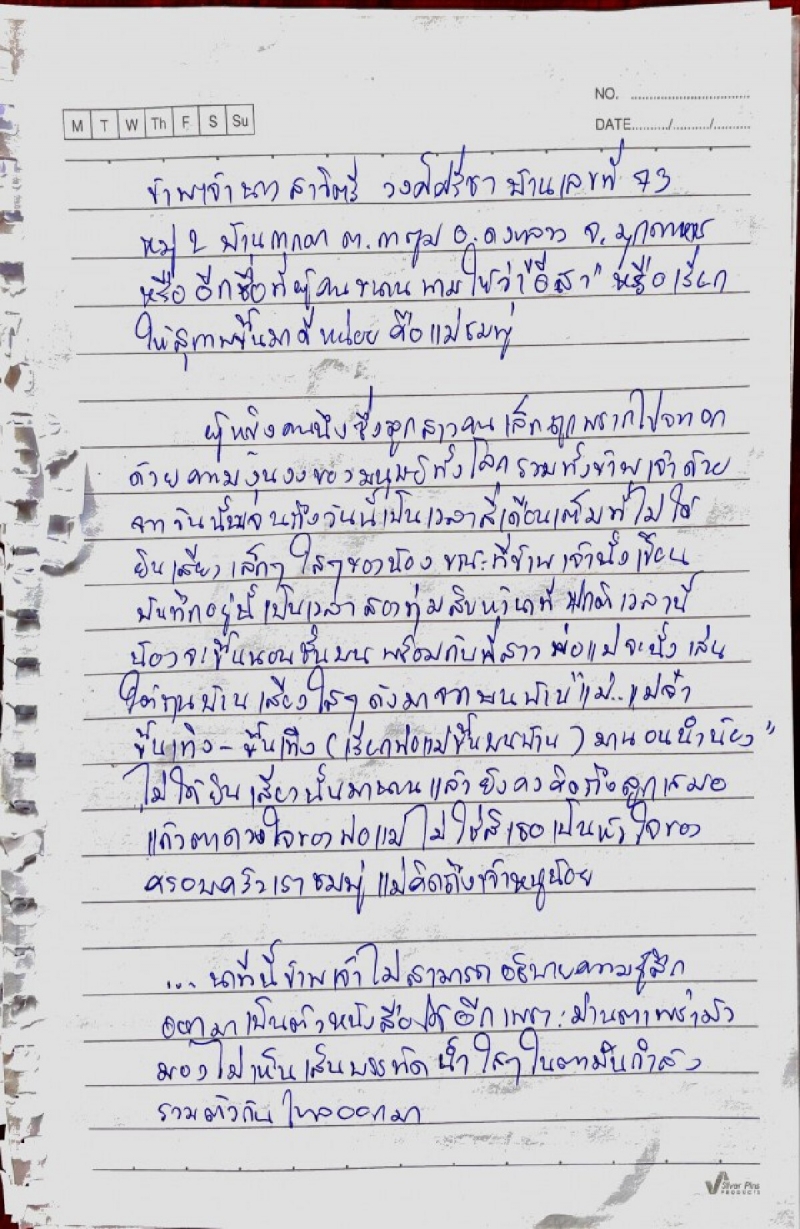 NO. ..............................
M T W Th F S Su
DATE........../........../..........
ข้าพเจ้านาง สาวิตรี วงศ์ศรีชา บ้านเลขที่ 73
หมู่ 2 บ้านกกกอก ต.กกตูม อ.ดงหลวง จ.มุกดาหาร
หรือ อีกชื่อที่ผู้คนขนานนามให้ว่า "อีสา" หรือ เรียก
ให้สุภาพขึ้นมาดีหน่อย คือ แม่ชมพู่
ผู้หญิงคนนึงซึ่งลูกสาวคนเล็กถูกพรากไปจากอก
ด้วยความงุนงงของมนุษย์ทั้งโลก รวมทั้งข้าพเจ้าด้วย
จากวันนั้นจนถึงวันนี้เป็นเวลาสี่เดือนเต็มที่ไม่ได้
ยินเสียงเล็กๆ ใสๆของน้อง ขณะที่ข้าพเจ้านั่งเขียน
บันทึกอยู่นี้เป็นเวลาสองทุ่มสิบห้านาที ปกติเวลานี้
น้องจะขึ้นนอนชั้นบน พร้อมกับพี่สาว พ่อแม่จะนั่งเล่น
ใต้ถุนบ้าน เสียงใสๆ ดังมาจากบนบ้าน "แม่..แม่จ๋า
ขึ้นเทิง - ขึ้นเทิง (เรียกพ่อแม่ขึ้นบนบ้าน) มานอนนำน้อง"
ไม่ได้ยินเสียงนั้นมานานแล้ว ยังคงคิดถึงลูกเสมอ
แก้วตาดวงใจของพ่อแม่ ไม่ใช่สิเธอเป็นหัวใจของ
ครอบครัวเรา ชมพู่ แม่คิดถึงเจ้าหนูน้อย
... นาทีนี้ข้าพเจ้าไม่สามารถอธิบายความรู้สึก
ออกมาเป็นตัวหนังสือได้อีก เพราะม่านตาพร่ามัว
มองไม่เห็นเส้นบรรทัด น้ำใสๆ ในตามันกำลัง
รวมตัวกันไหลออกมา
Silver Pins
PRODUCTS